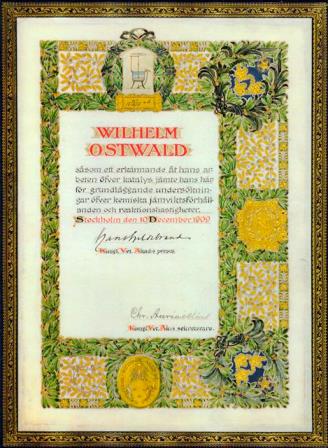 WILHELM
OSTWALD
såsom ett erkännande åt hans ar-
beten öfver katalys jämte hans här-
för grundläggande undersöknin-
gar öfver kemiska jämviktsförhåll-
anden och reaktionshastigheter.
Stockholm den 10 December 1909
Hans Hildebrand
Kungl. Vet. Akad:s præses.
Chr. Aurivillius
Kungl. Vet. Akad:s sekreterare.